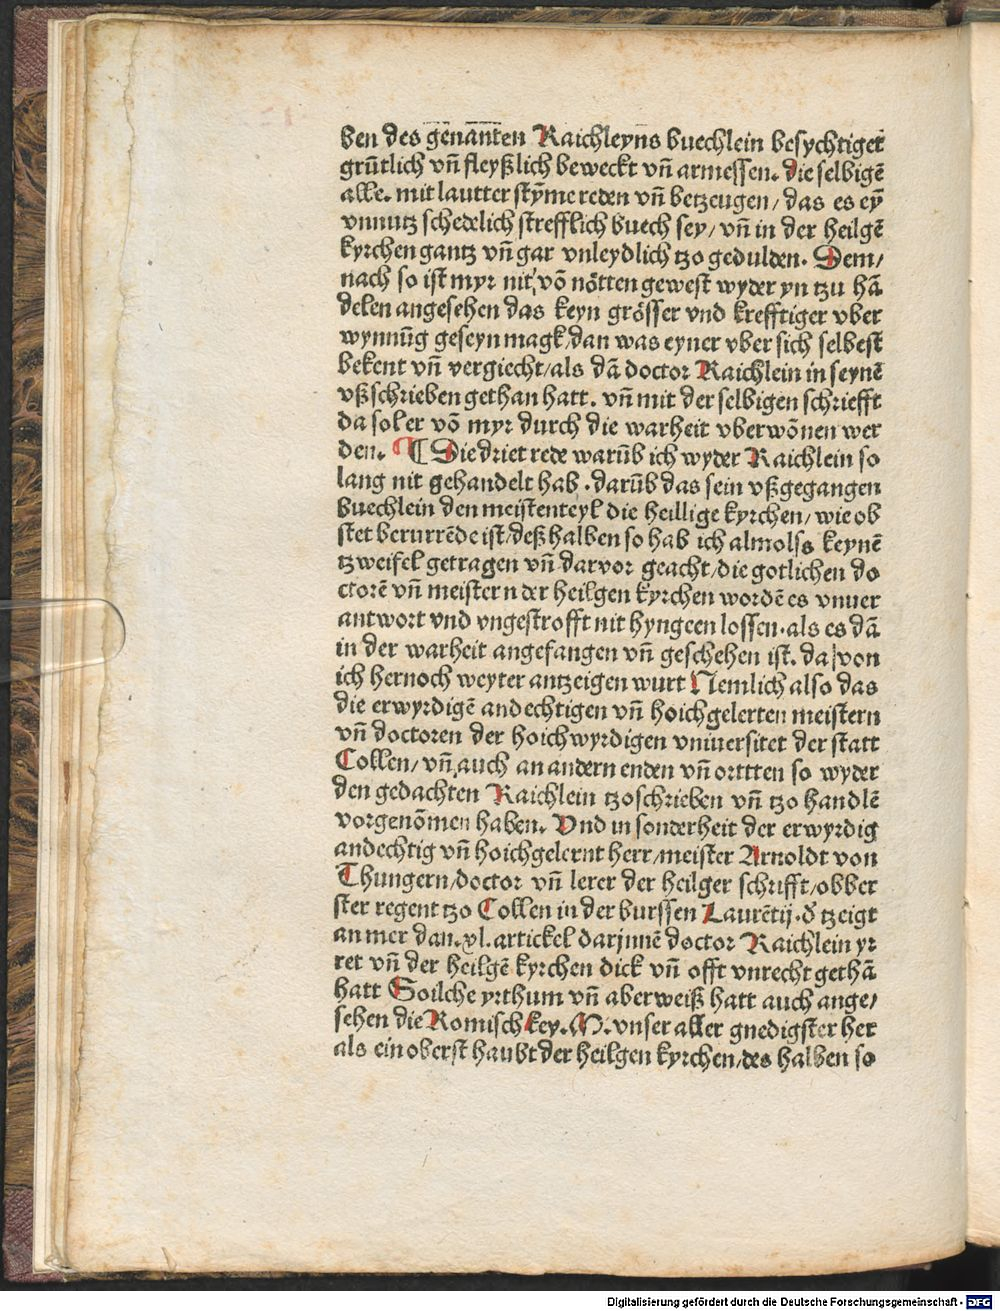 ben des genanten Raichleyns buechlein besychtiget
grũtlich vñ fleyßlich beweckt vñ armessen. die selbigẽ
alle. mit lautter stỹme reden vñ betzeugen / das es eỹ
vnnutz schedelich strefflich buech sey / vñ in der heilgẽ
kyrchen gantz vñ gar vnleydlich tzo gedulden. Dem /
nach so ist myr nit võ nötten gewest wyder yn tzu hã
delen angesehen das keyn grösser vnd krefftiger vber
wynnũg geseyn magk / dan was eyner vber sich selbest
bekent vñ vergiecht / als dã doctor Raichlein in seynẽ
vßschrieben gethan hatt. vñ mit der selbigen schriefft
da sol er võ myr durch die warheit vberwõnen wer
den. ¶ Die driet rede warũb ich wyder Raichlein so
lang nit gehandelt hab. darũb das sein vßgegangen
buechlein den meistenteyl die heillige kyrchen / wie ob
stet berurrẽde ist / deßhalben so hab ich almolss keynẽ
tzweifel getragen vñ darvor geacht / die gotlichen do
ctorẽ vñ meistern der heilgen kyrchen wordẽ es vnuer
antwort vnd vngestrofft nit hyngeen lossen. als es dã
in der warheit angefangen vñ geschehen ist. da von
ich hernoch weyter antzeigen wurt Nemlich also das
die erwyrdigẽ andechtigen vñ hoichgelerten meistern
vñ doctoren der hoichwyrdigen vniuersitet der statt
Collen / vñ auch an andern enden vñ orttten so wyder
den gedachten Raichlein tzoschrieben vñ tzo handlẽ
vorgenõmen haben. Vnd in sonderheit der erwyrdig
andechtig vñ hoichgelernt herr / meister Arnoldt von
Thungern / doctor vñ lerer der heilger schrifft / obber
ster regent tzo Collen in der burssen Laurẽtij. d̕ tzeigt
an mer dan. xl. artickel darjnnẽ doctor Raichlein yr
ret vñ der heilgẽ kyrchen dick vñ offt vnrecht gethã
hatt Soilche yrthum vñ aberweiß hatt auch ange /
sehen die Romisch key. M. vnser aller gnedigster her
als ein oberst haubt der heilgen kyrchen / des halben so
Digitalisierung gefördert durch die Deutsche Forschungsgemeinschaft - DFG